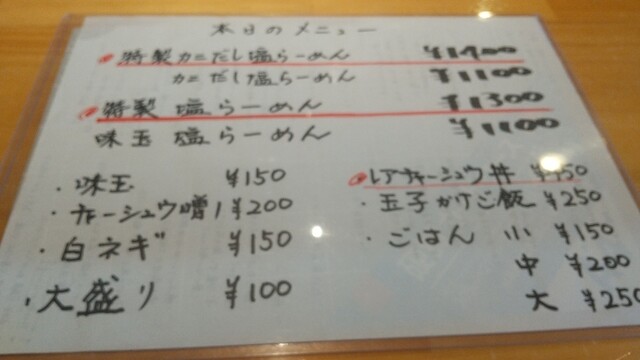 本日のメニュー
特製カニだし塩らーめん ¥1400
カニだし塩らーめん ¥1100
特製 塩らーめん ¥1300
味玉 塩らーめん ¥1100
・味玉 ¥150
・チャーシュウ増し ¥200
・白ネギ ¥150
・大盛り ¥100
レアチャーシュウ丼
・玉子かけご飯 ¥250
・ごはん 小 ¥150
中 ¥200
大 ¥250